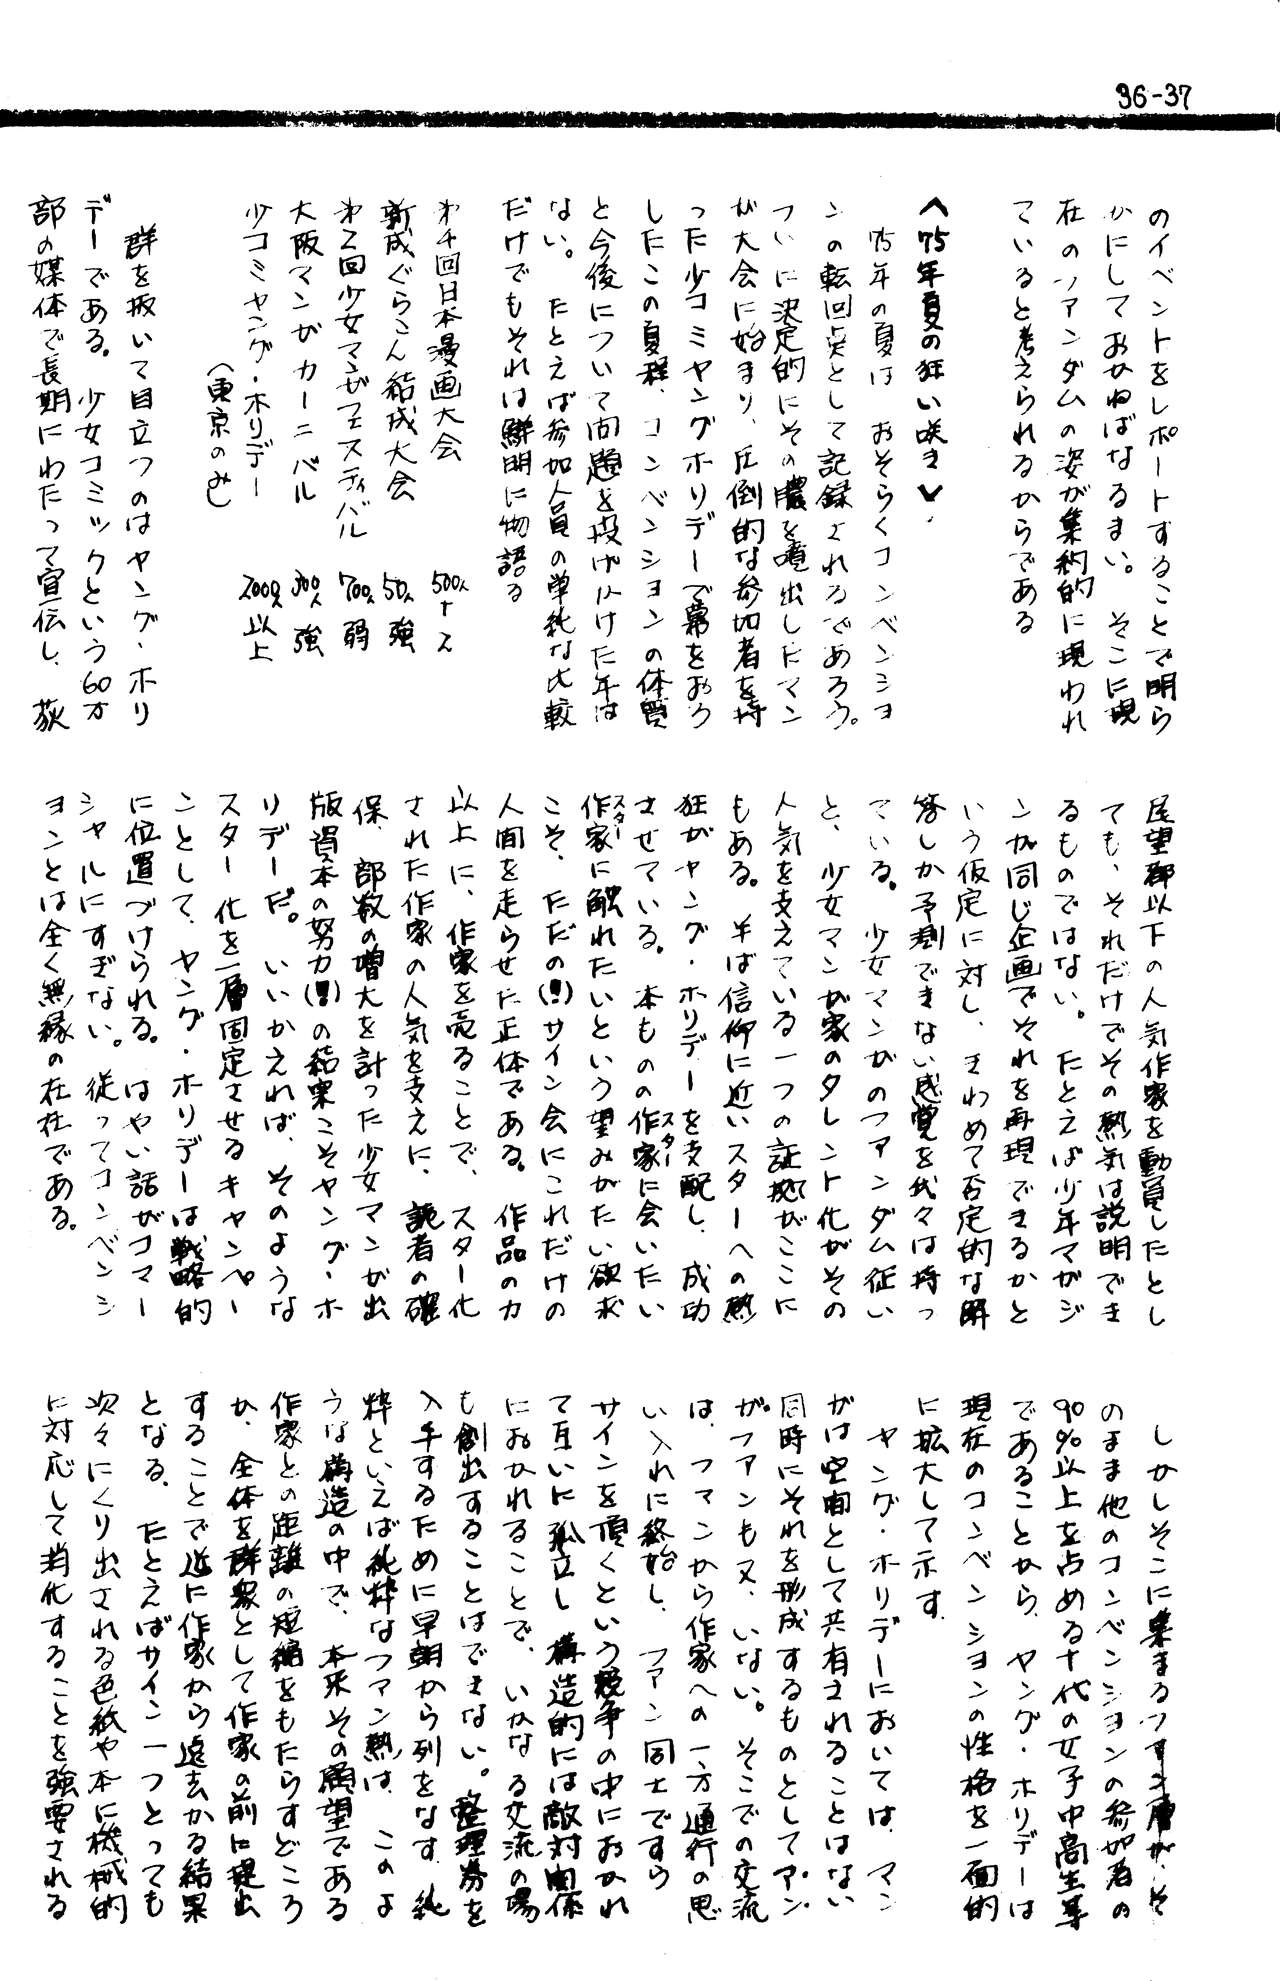 36-37
のイベントをレポートすることで明ら
かにしておかねばなるまい。そこに現
在のファンダムの姿が集約的に現われ
ていると考えられるからである
〈75年夏の狂い咲き〉
75年の夏は おそらくコンベンショ
ンの転回点として記録されるであろう。
ついに決定的にその膿を噴出したマン
が大会に始まり、圧倒的な参加者を持
った少コミヤングホリデーで幕をおろ
したこの夏程、コンベンションの体質
と今後について問題を投げかけた年は
ない。たとえば参加人員の単純な比較
だけでもそれは鮮明に物語る
第4回日本漫画大会 500人+α
新成ぐらこん結成大会 50人強
第2回少女マンガフェスティバル 700人弱
大阪マンガカーニバル 300人強
少コミヤング・ホリデー 2000人以上
(東京のみ)
群を抜いて目立つのはヤング・ホリ
デーである。少女コミックという60万
部の媒体で長期にわたって宣伝し、萩
尾望都以下の人気作家を動員したとし
ても、それだけでその熱気は説明でき
るものではない。たとえば少年マガジ
ンが同じ企画でそれを再現できるかと
いう仮定に対し、きわめて否定的な解
答しか予測できない感覚を我々は持っ
ている。少女マンガのファンダム征い
と、少女マンガ家のタレント化がその
人気を支えている一つの証拠がここに
もある。半ば信仰に近いスターへの熱
狂がヤング・ホリデーを支配し、成功
させている。本ものの作家(スター)に会いたい
作家(スター)に触れたいという望みがたい欲求
こそ、ただの(!)サイン会にこれだけの
人間を走らせた正体である。作品の力
以上に、作家を売ることで、スター化
された作家の人気を支えに、読者の確
保、部数の増大を計った少女マンガ出
版資本の努力(!)の結果こそヤング・ホ
リデーだ。いいかえれば、そのような
スター化を一層固定させるキャンペー
ンとして、ヤング・ホリデーは戦略的
に位置づけられる。はやい話がコマー
シャルにすぎない。従ってコンベンシ
ョンとは全く無縁の存在である。
しかしそこに集まるファン層が、そ
のまま他のコンベンションの参加者の
90%以上を占める十代の女子中高生等
であることから、ヤング・ホリデーは
現在のコンベンションの性格を一面的
に拡大して示す。
ヤング・ホリデーにおいては、マン
がは空間として共有されることはない
同時にそれを形成するものとしてファン
がファンも又、いない。そこでの交流
は、フマンから作家への一方通行の思
い入れに終始し、ファン同士ですら
サインを頂くという競争の中におかれ
て互いに孤立し 構造的には敵対関係
におかれることで、いかなる交流の場
も創出することはできない。整理券を
入手するために早朝から列をなす、純
粋といえば純粋なフマン熱は、このよ
うな構造の中で、本来その願望である
作家との距離の短縮をもたらすどころ
か、全体を群衆として作家の前に提出
することで逆に作家から遠去かる結果
となる。たとえばサイン一つとっても
次々にくり出される色紙や本に機械的
に対応して消化することを強要される